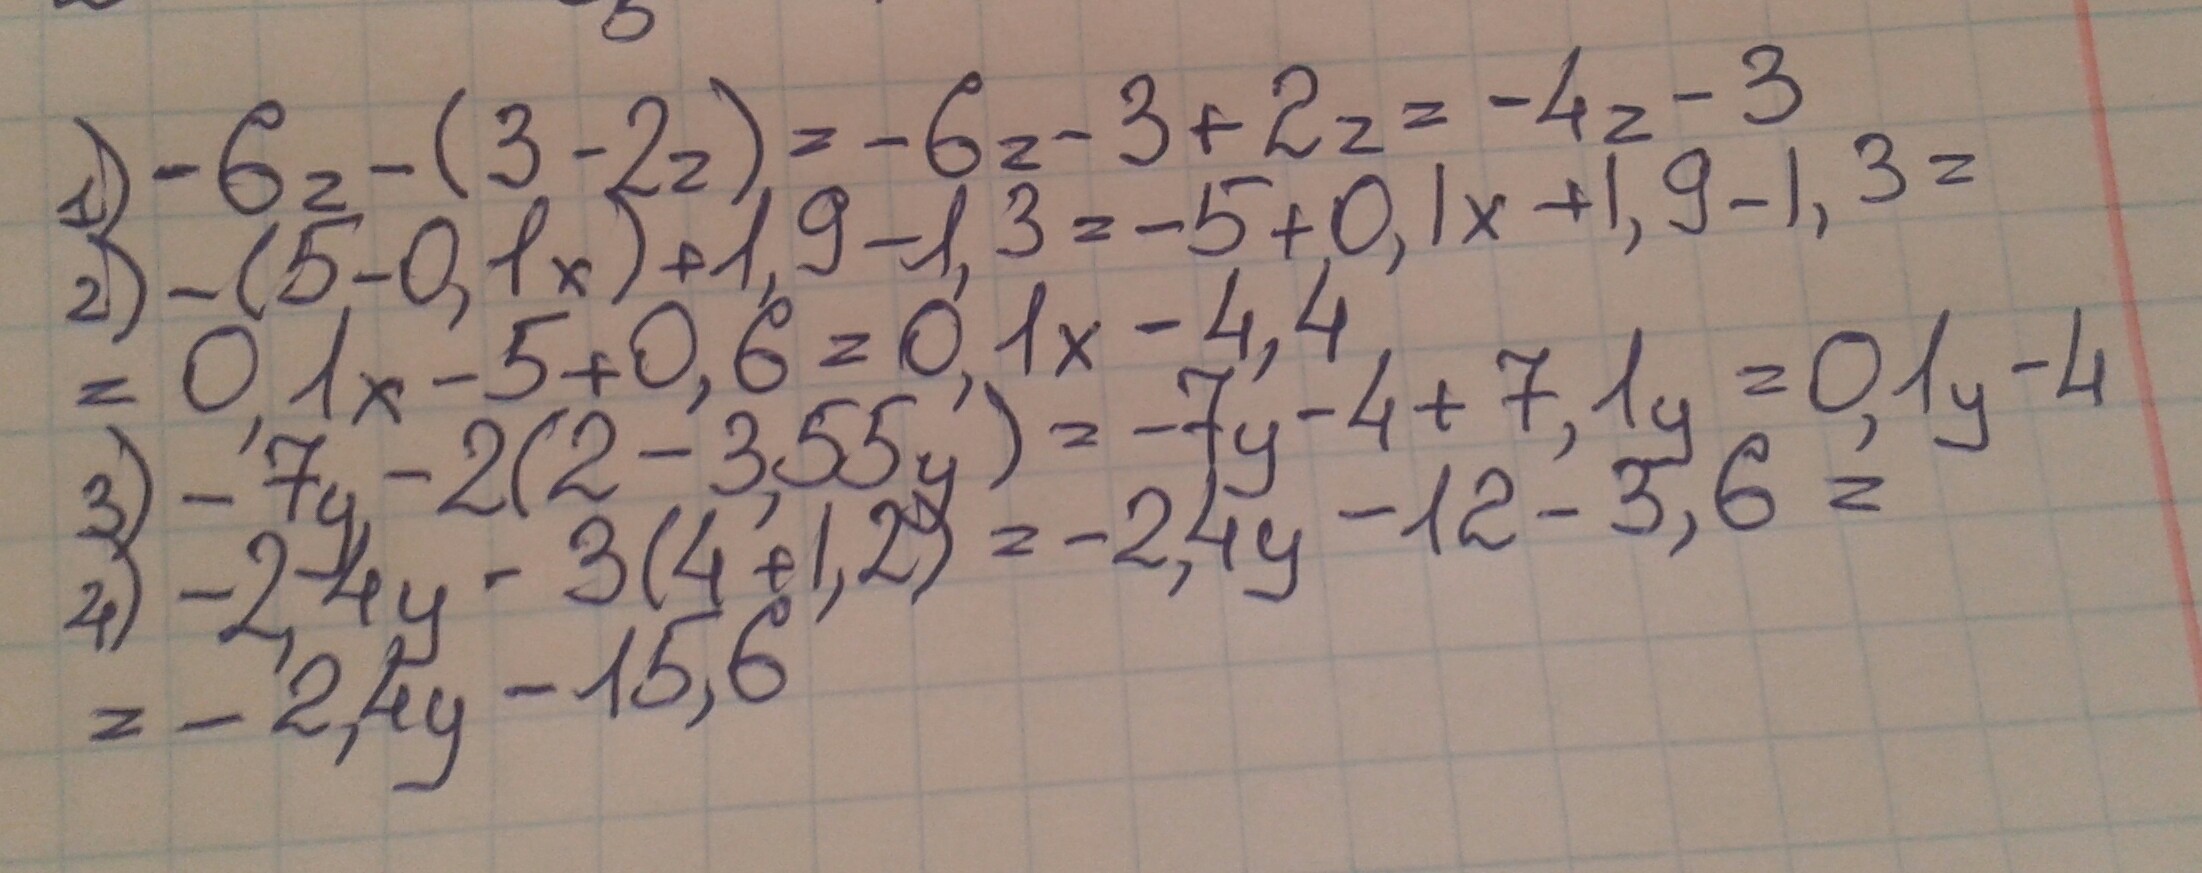 1) -6z-(3-2z)=-6z-3+2z=-4z-3
2) -(5-0,1x)+1,9-1,3=-5+0,1x+1,9-1,3=
=0,1x-5+0,6=0,1x-4,4
3) -7y-2(2-3,55y)=-7y-4+7,1y=0,1y-4
4) -2,4y-3(4+1,2)=-2,4y-12-3,6=
=-2,4y-15,6